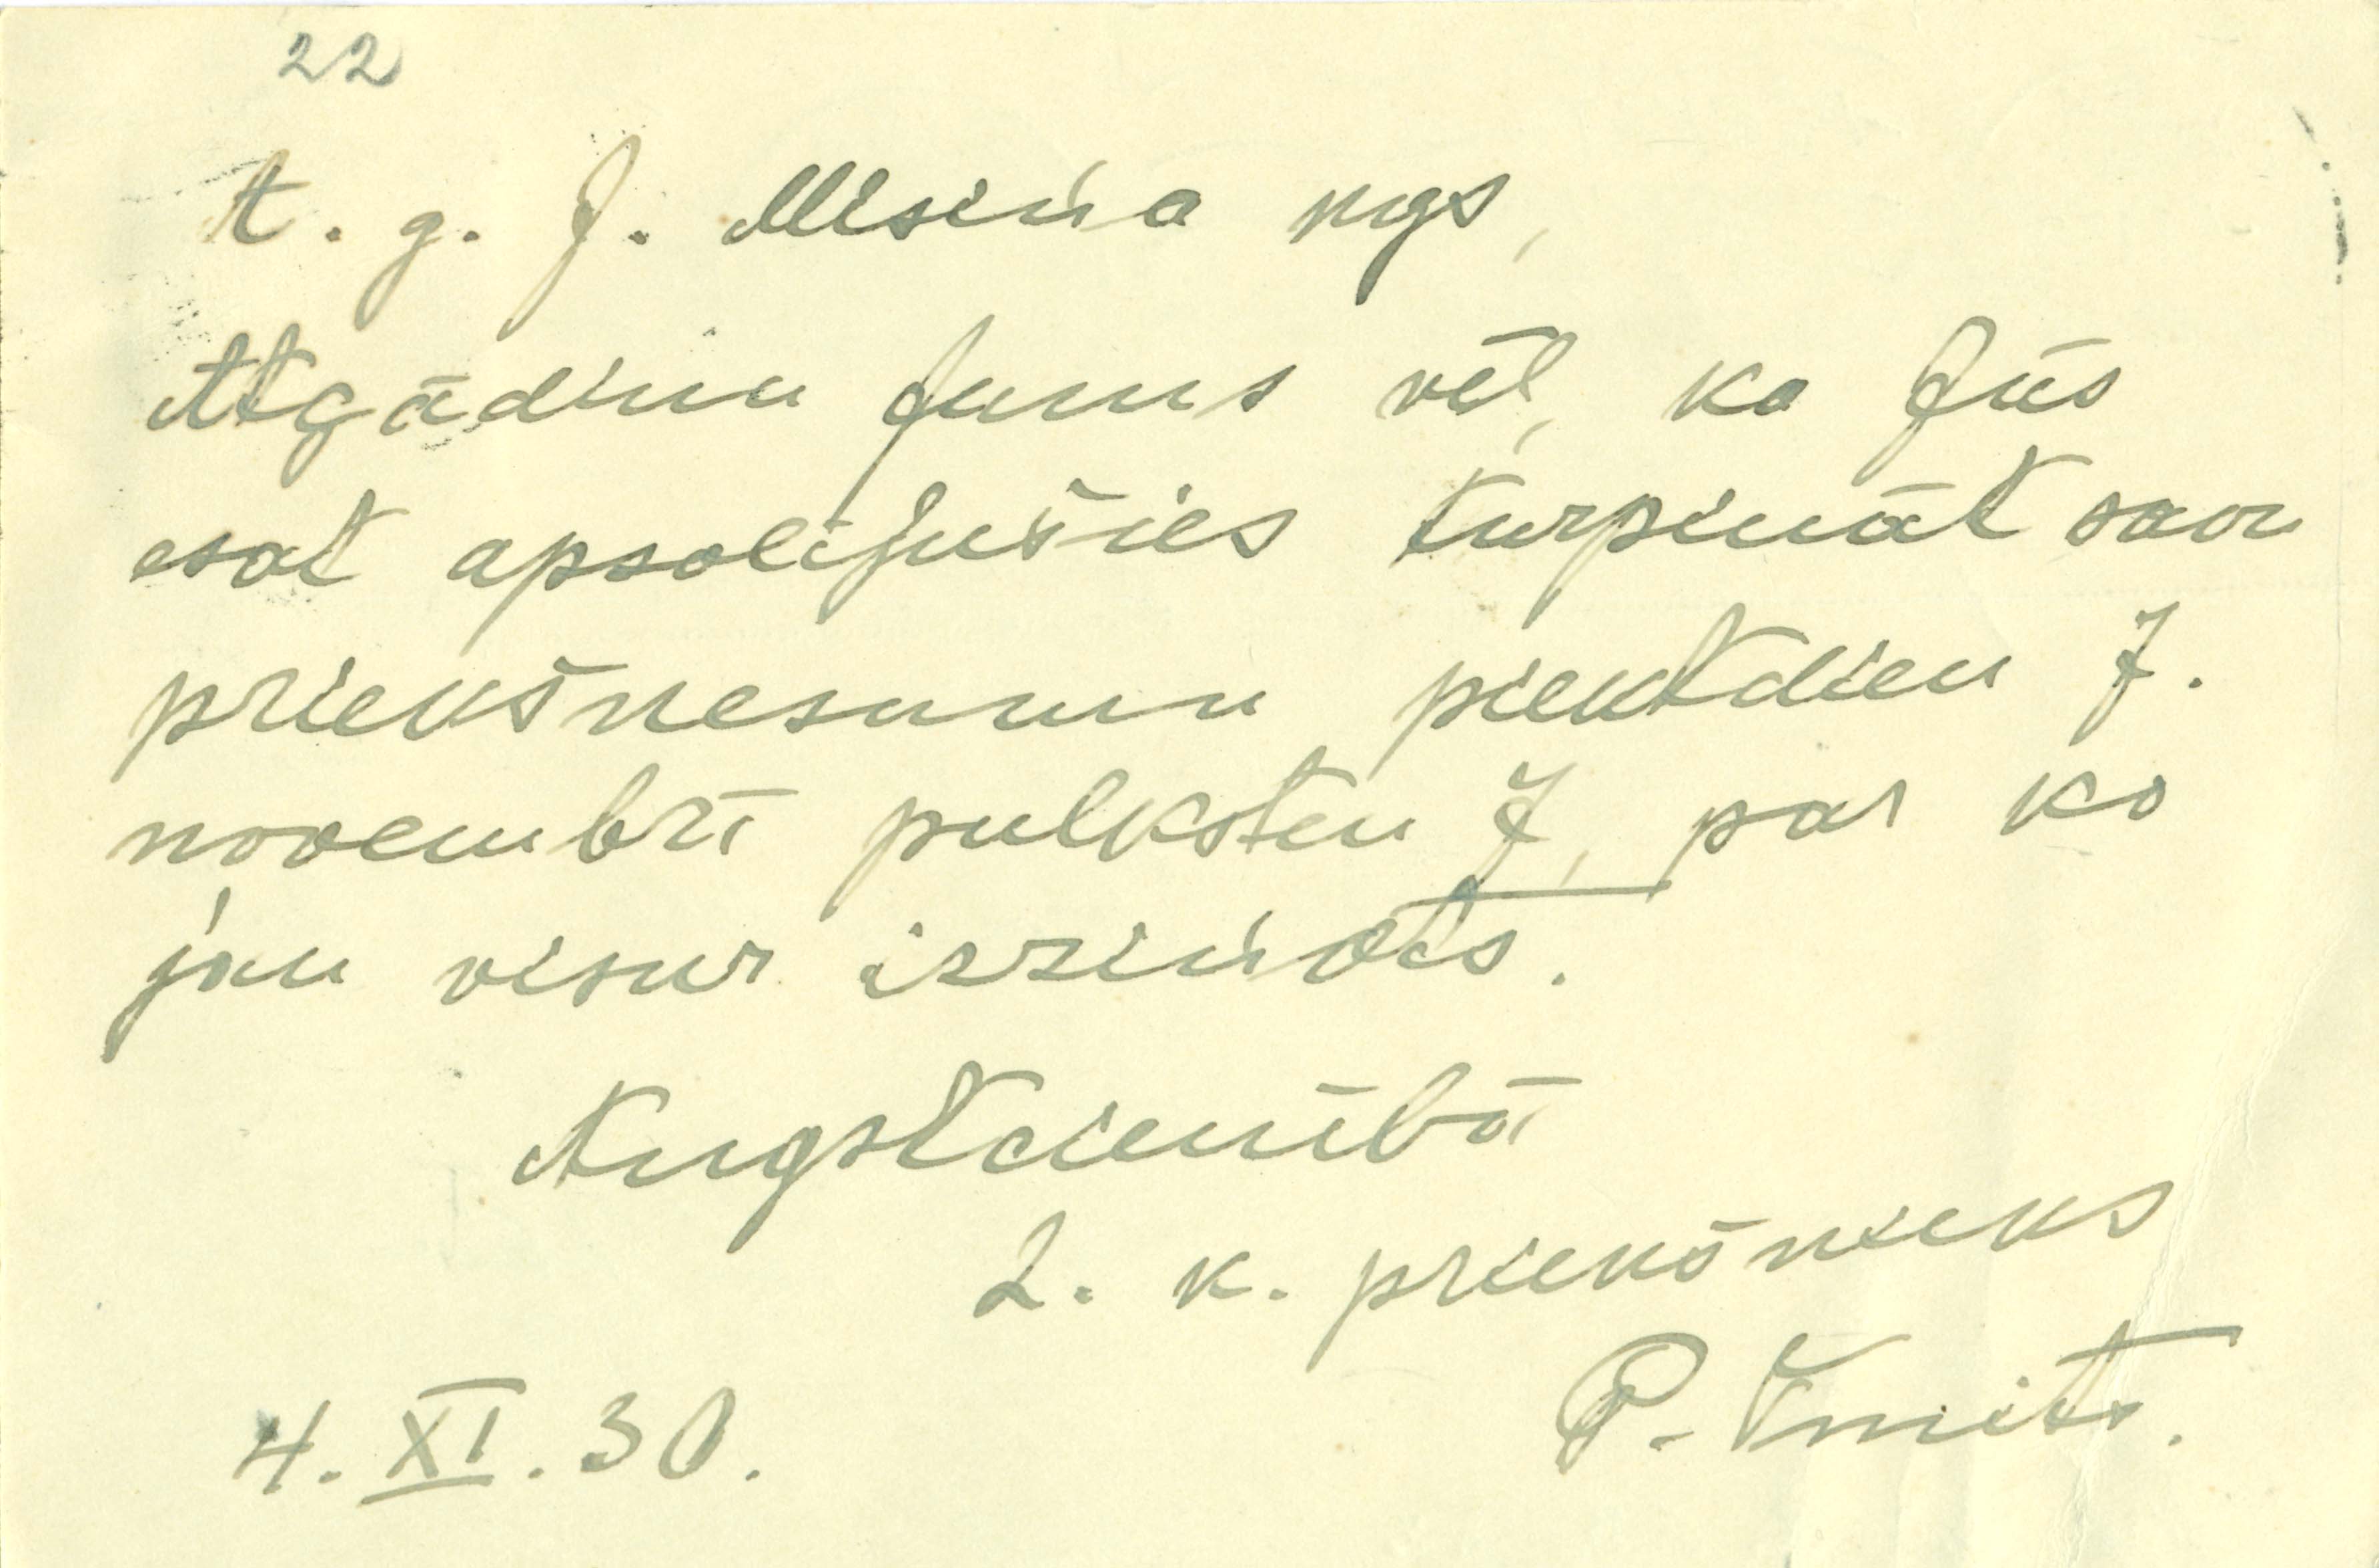 22
A. g. J. Misiņa kgs,
Atgādinu Jums vēl, ka Jūs
esat apsolījušies turpināt savu
priekšnesumu piektdien 7.
novembrī pulksten 7, par ko
jau visur izziņots.
Augstcienībā
L. k. priekšnieks
P. Šmits.
4. XI. 30.